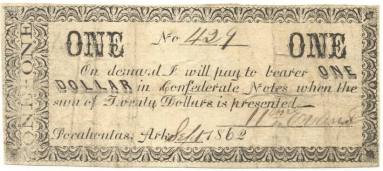 ONE No 429 ONE
On demand I will pay to bearer ONE
DOLLAR in Confederate Notes when the
sum of Twenty Dollars is presented
Pocahontas, Ark. 1862
ONE ONE